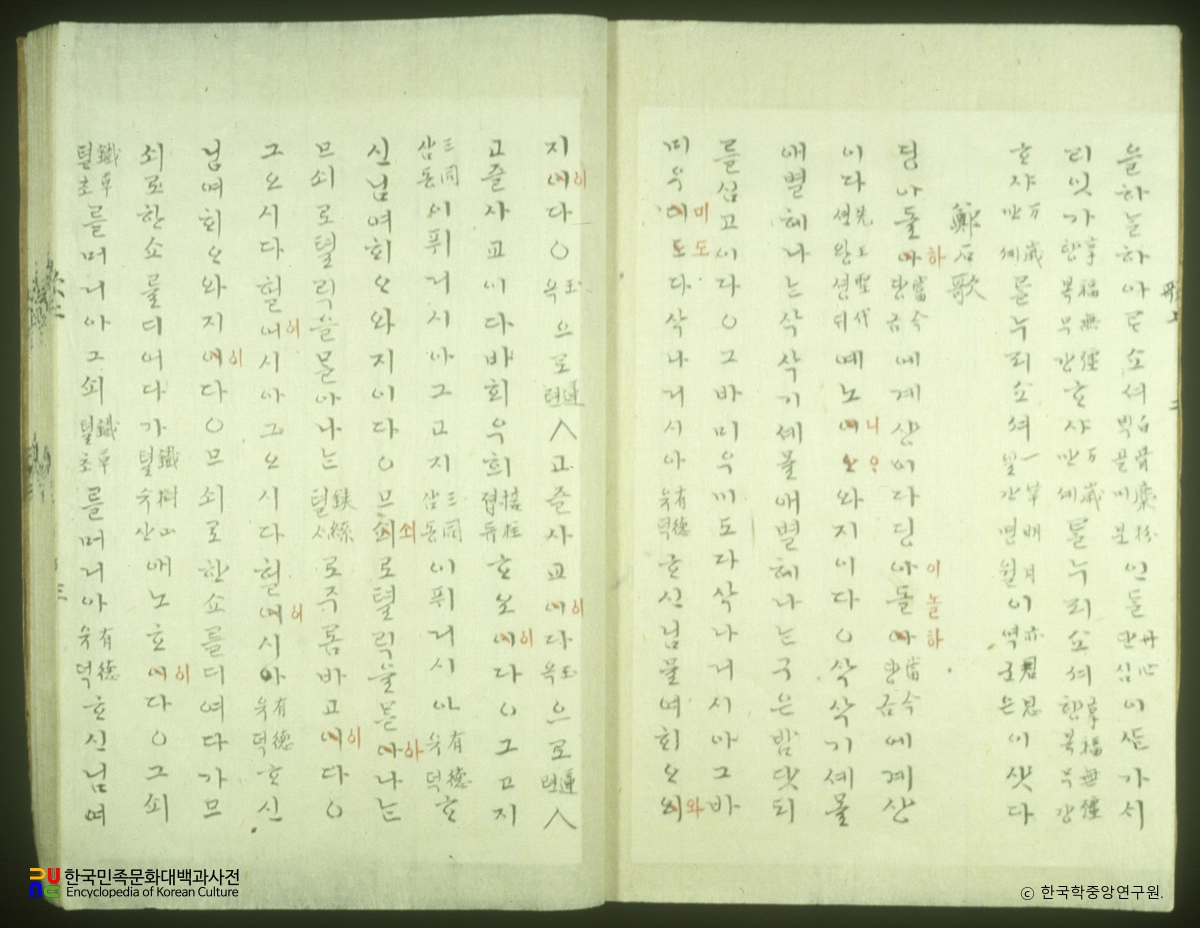 을하늘하아로쇼셔白骨糜粉ᄇᆡᆨ골미분인들丹心단심이ᄯᆞᆫ가시
리잇가享福無疆향복무강호샤万歲만셰를누리쇼셔享福無疆향복무강
호샤万歲만셰를누리쇼셔一竿明月일간명월이亦君恩역군은이샷다
鄭石歌
딩아돌하當今당금에계샹이다딩아돌하當今당금에계샹
이다先王聖代션왕셩ᄃᆡ예노니ᄋᆞ와지이다○삭삭기셰몰
애별헤나ᄂᆞᆫ삭삭기셰몰애별헤나ᄂᆞᆫ구은밤닷되
를심고이다○그바미우미도다삭나거시아그바
미우미도다삭나거시아有德유덕호신님믈여희ᄋᆞ와
지이다○玉옥으로蓮련ㅅ고즐사교이다玉옥으로蓮련ㅅ
고즐사교이다바회우희接柱졉듀호요이다○그고지
三同삼동이퓌거시아그고지三同삼동이퓌거시아有德유덕호
신님여희ᄋᆞ와지이다○므쇠로텰릭을ᄆᆞᆯ아나ᄂᆞᆫ
므쇠로텰릭을ᄆᆞᆯ아나ᄂᆞᆫ鐵絲텰ᄉᆞ로주롬바고이다○
그오시다헐어시아그오시다헐어시아有德유덕호신
님여희ᄋᆞ와지이다○므쇠로한쇼를디여다가므
쇠로한쇼를디여다가鐵樹山텰슈산애노호이다○그쇠
鐵草텰초를머거아그쇠鐵草텰초를머거아有德유덕호신님여
한국민족문화대백과사전
Encyclopedia of Korean Culture
ⓒ 한국학중앙연구원.